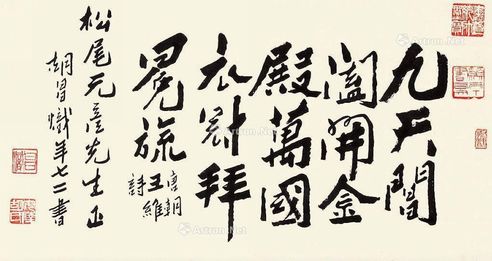 九天閶
闔開金
殿萬國
衣冠拜
冕旒
唐朝
王維
詩
松尾元先生正
胡昌熾年七二書
Artron.Net